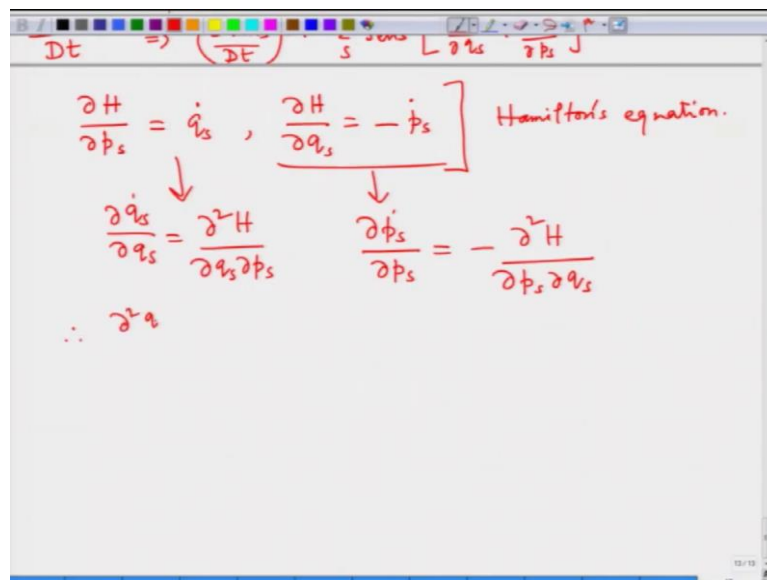 Dt ⇒ Dt s ∂qs ∂ps ]
∂H/∂ps = q̇s , ∂H/∂qs = - ṗs ] Hamilton's equation.
∂q̇s/∂qs = ∂²H/∂qs∂ps ∂ṗs/∂ps = - ∂²H/∂ps∂qs
∴ ∂²q
13/13